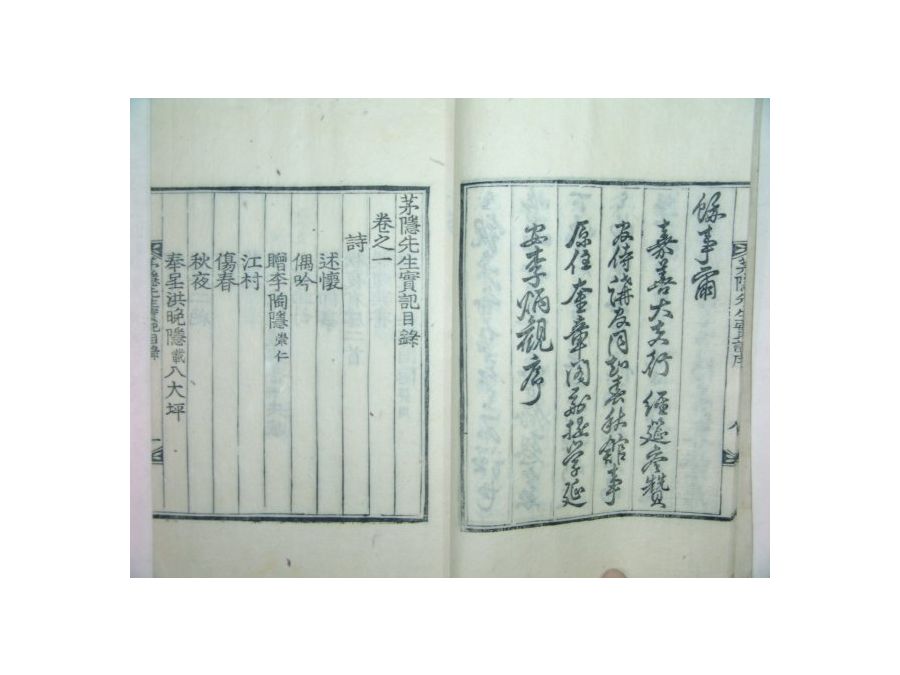 餘事爾
嘉善大夫行 經筵參贊
官侍講官同知春秋館事
原任奎章閣副提學延
安李炳觀序
茅隱先生實記目錄
卷之一
詩
述懷
偶吟
贈李陶隱崇仁
江村
傷春
秋夜
奉呈洪晩隱載八大坪
茅隱先生實記目錄